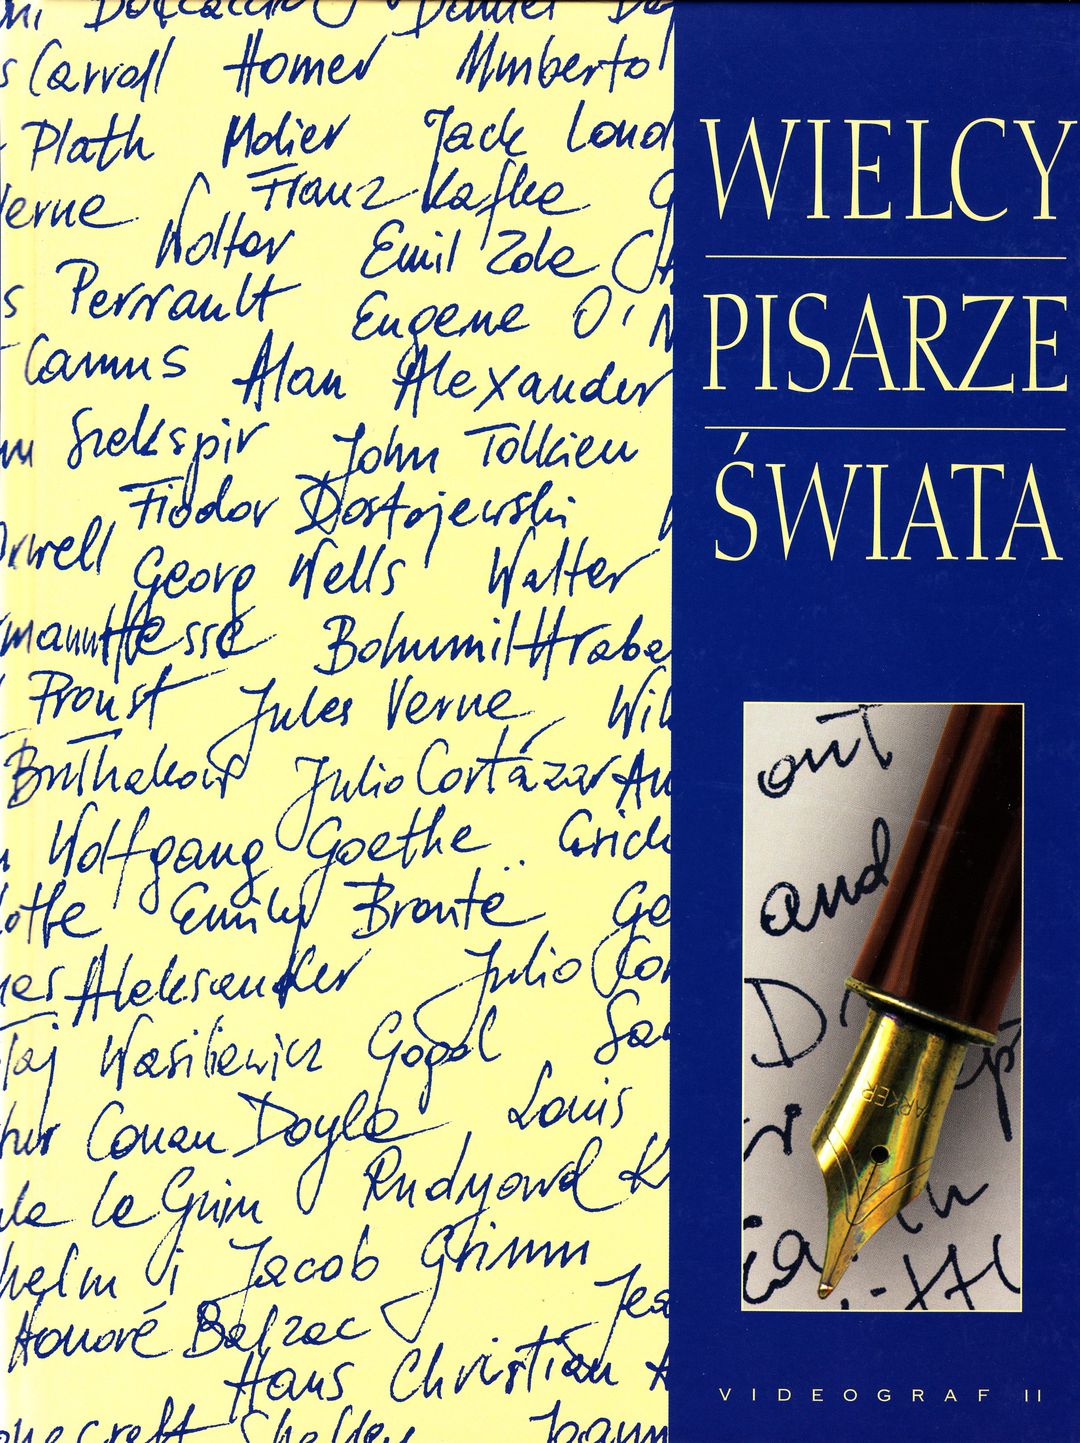 Daniel
s Carroll Homer Umberto
Plath Molier Jack Lond
Verne Franz Kafka G
Wolter Emil Zola
s Perrault Eugene O'N
Camus Alan Alexander
m Szekspir John Tolkien
Fiodor Dostojewski
Orwell Georg Wells Walter
rmann Hesse Bohumil Hraba
Proust Jules Verne Wil
Bułhakow Julio Cortázar An
Wolfgang Goethe Erich
lotte Emily Brontë Ge
mes Aleksander Julio Cor
łaj Wasiliewicz Gogol Sa
hur Conan Doyle Louis
ula le Guin Rudyard K
helm i Jacob Grimm
Honoré Balzac Jea
Hans Christian A
onecraft Shelley Joann
WIELCY
PISARZE
ŚWIATA
out
and
D
PARKER
VIDEOGRAF II